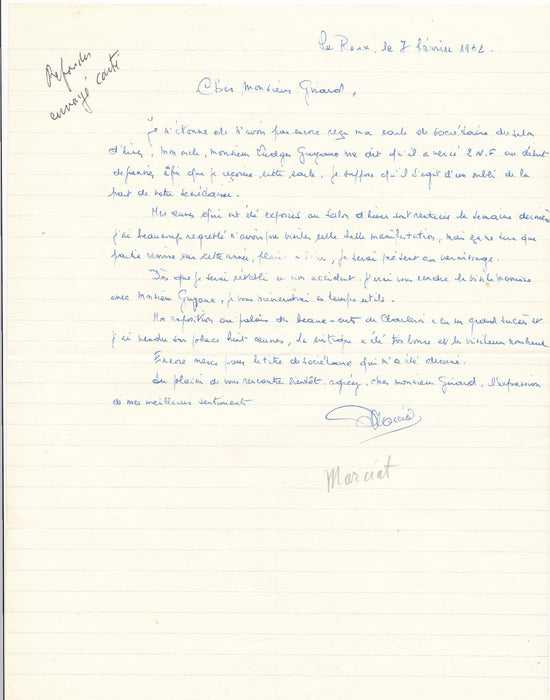 Le Roux, le 7 février 1962.
envoyé carte
Cher Monsieur Girard,
Je m'étonne de n'avoir pas encore reçu ma carte de sociétaire du Salon
d'hiver, mon oncle, monsieur Guyaux m'a dit qu'il a versé 2 N.F au début
de janvier afin que je reçoive cette carte. Je suppose qu'il s'agit d'un oubli de la
part de votre secrétaire.
Mes œuvres qui ont été exposées au Salon d'hiver sont rentrées la semaine dernière
j'ai beaucoup regretté n'avoir pu visiter cette belle manifestation, mais ce ne sera que
partie remise car cette année, je serai présent au vernissage.
Dès que je serai rétabli de mon accident, j'irai vous rendre la visite promise
avec Monsieur Guyaux, je vous préviendrai en temps utile.
Mon exposition au palais des beaux-arts de Charleroi a eu un grand succès et
j'ai vendu sur place huit œuvres, la critique a été très bonne et les visiteurs nombreux
Encore merci pour le titre de sociétaire qui m'a été décerné.
Au plaisir de vous rencontrer bientôt, agréez, cher monsieur Girard, l'expression
de mes meilleurs sentiments
Marciat